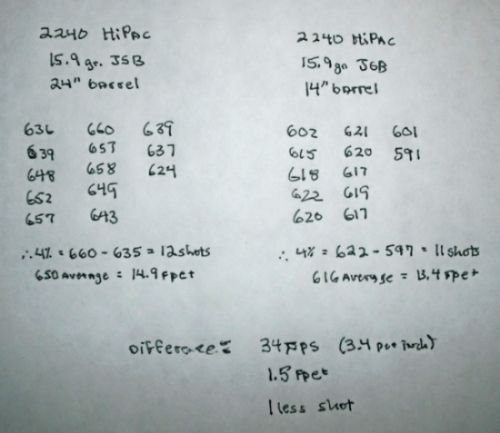 2240 HiPAC
15.9 gr. JSB
24" barrel
636 660 639
639 657 637
648 658 624
652 649
657 643
∴ 4% = 660 - 635 = 12 shots
650 Average = 14.9 fpet
2240 HiPAC
15.9 gr JSB
14" barrel
602 621 601
615 620 591
618 617
622 619
620 617
∴ 4% = 622 - 597 = 11 shots
616 Average = 13.4 fpet
Difference: 34 fps (3.4 per inch)
1.5 fpet
1 less shot